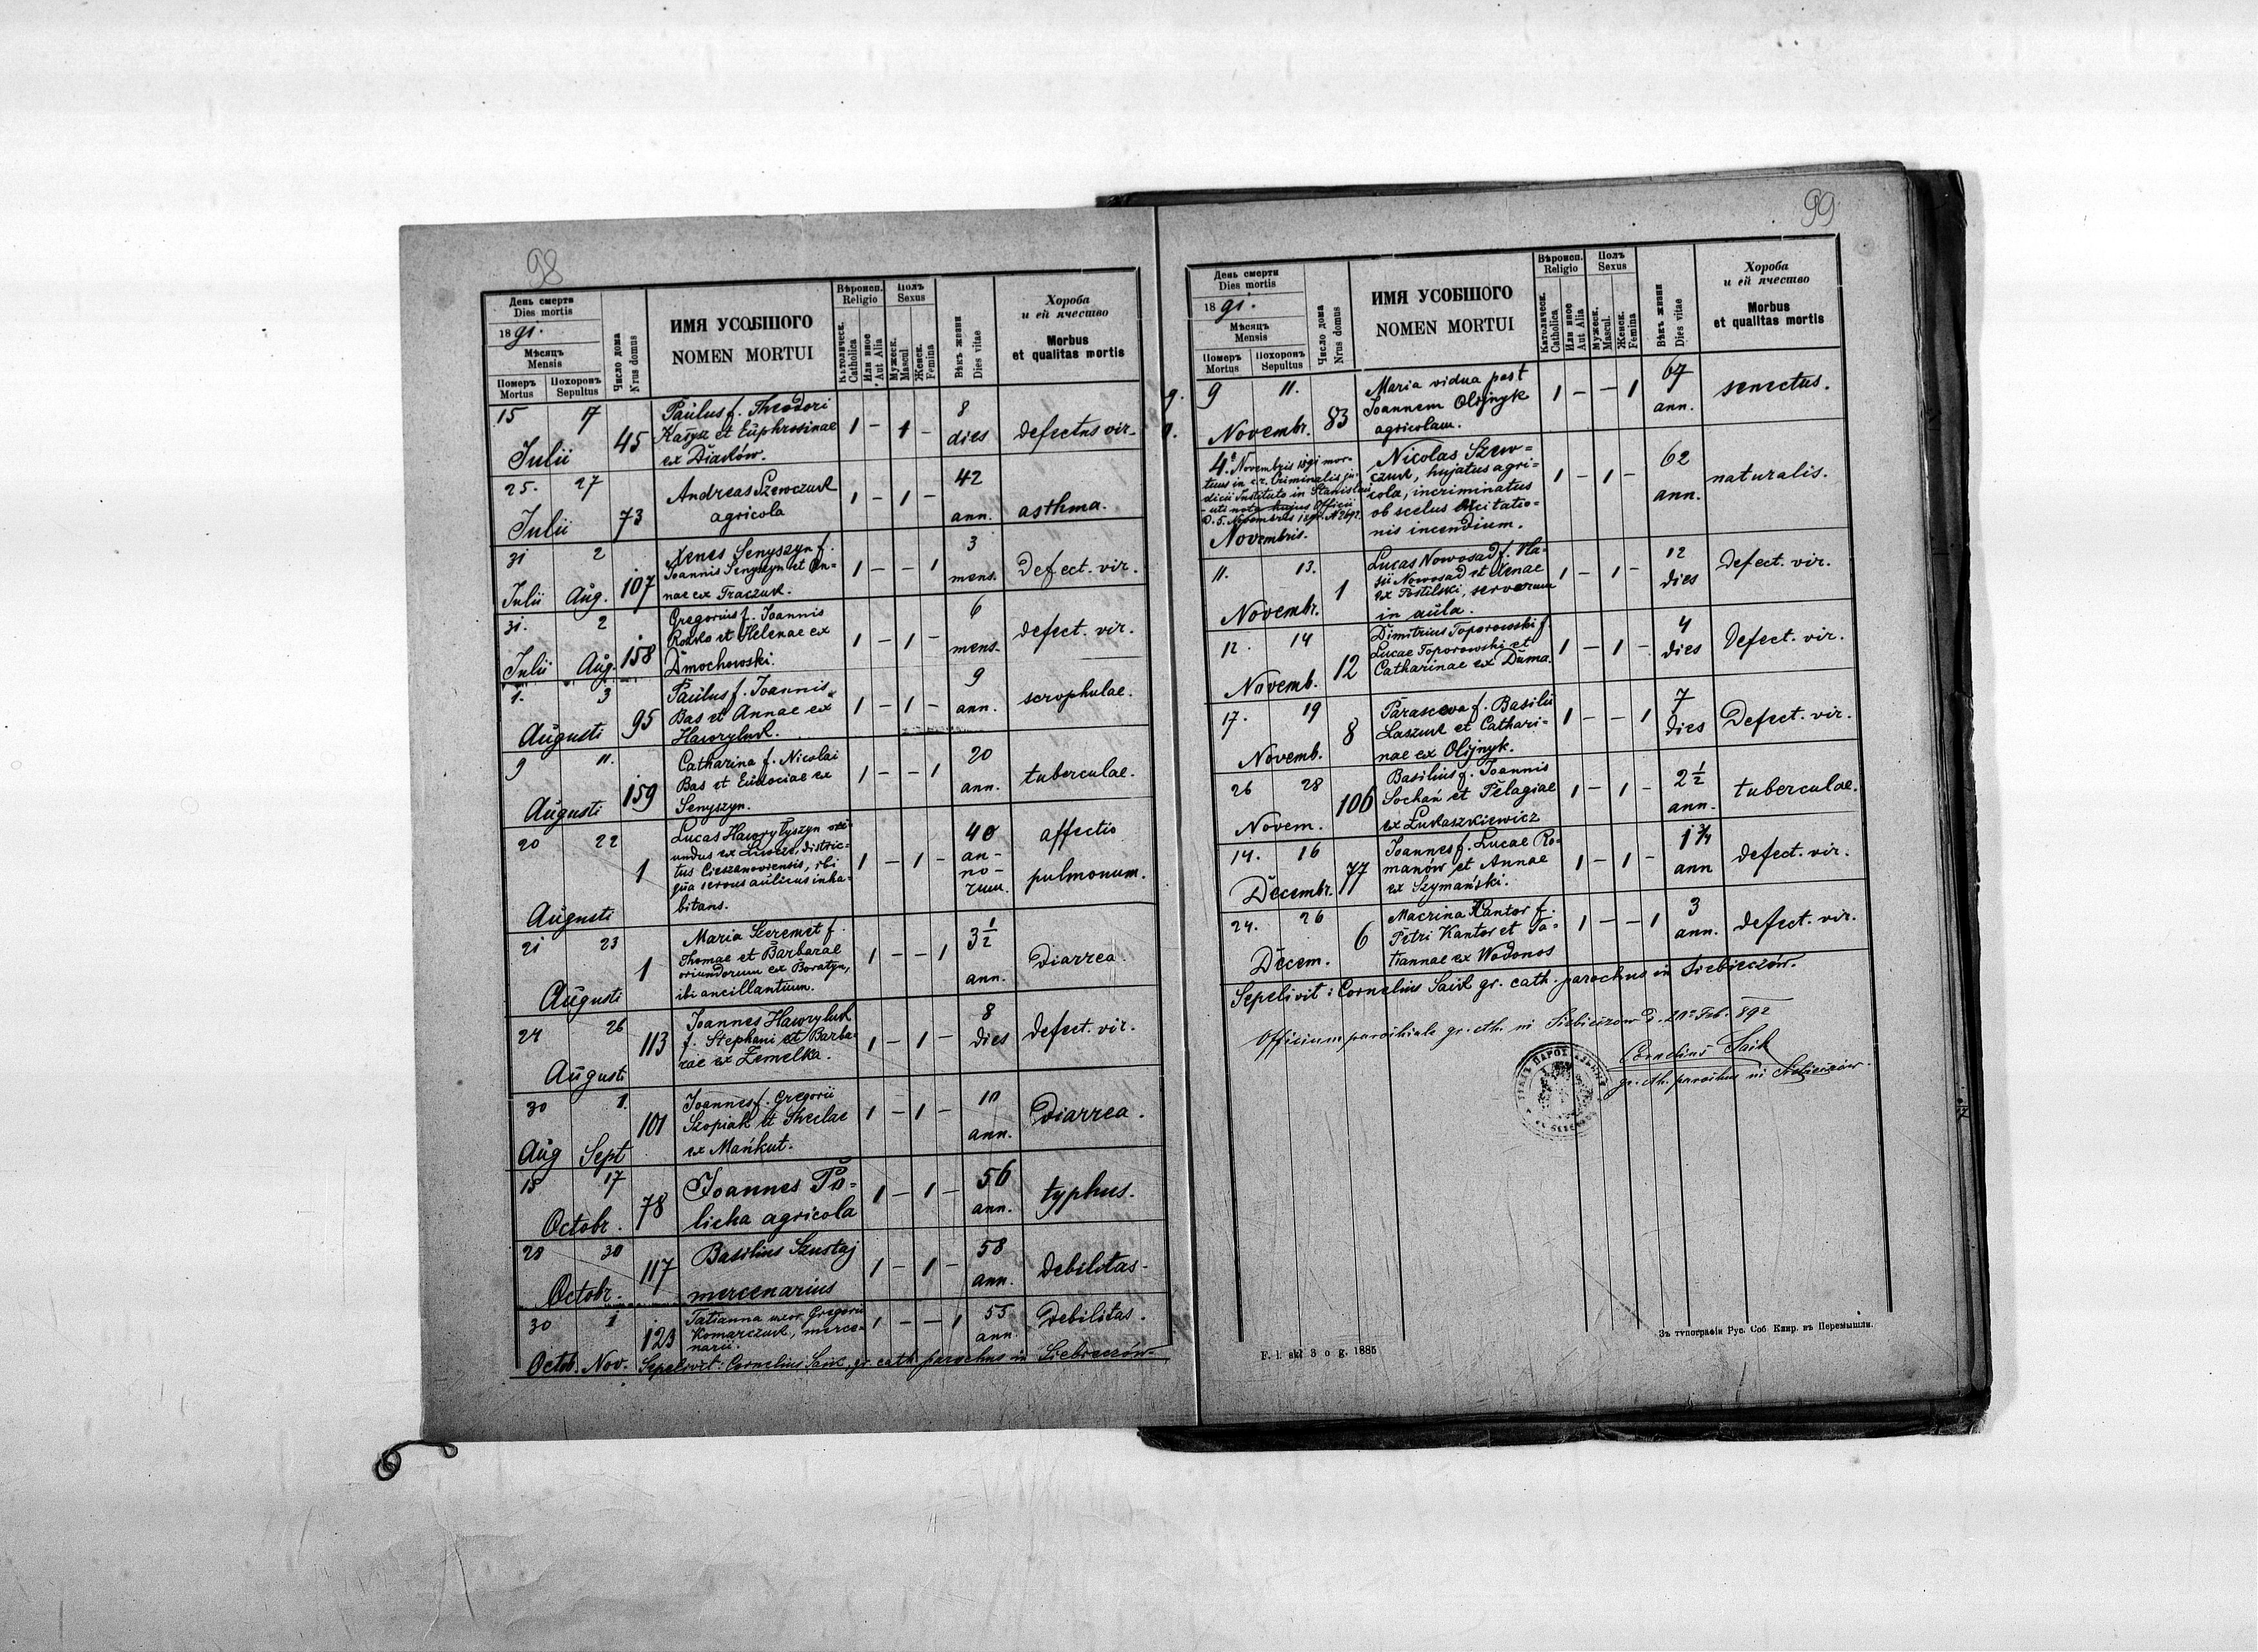 98
День смерти
Dies mortis
1891.
Мѣсяцъ
Mensis
Померъ Похоронъ
Mortus Sepultus
Число дома
Nrus domus
ИМЯ УСОБШОГО
NOMEN MORTUI
Вѣроисп.
Religio
Католическ.
Catholica
Или иное
Aut Alia
Полъ
Sexus
Мужеск.
Mascul.
Женск.
Femina
Вѣкъ жизни
Dies vitae
Хороба
и ей ячество
Morbus
et qualitas mortis
15 17 Julii 45
Paulus f. Theodori
Kasysz et Euphrosinae
ex Diaków.
1 – 1 – 8 dies defectus vir.
25. 27 Julii 73
Andreas Szewczuk
agricola
1 – 1 – 42 ann. asthma.
31 Julii 2 Aug. 107
Xenes Senyszyn f.
Joannis Senyszyn et An=
nae ex Traczuk.
1 – – 1 3 mens. Defect. vir.
31. Julii 2 Aug. 158
Gregorius f. Joannis
Rozko et Helenae ex
Dmochowski.
1 – 1 – 6 mens. defect. vir.
1. 3 Augusti 95
Paulus f. Joannis
Bas et Annae ex
Hawryluk.
1 – 1 – 9 ann. scrophulae.
9 11. Augusti 159
Catharina f. Nicolai
Bas et Eudociae ex
Senyszyn.
1 – – 1 20 ann. tuberculae.
20 22 Augusti 1
Lucas Hawrylyszyn ori=
undus ex distric=
tus Cieszanoviensis, ibi
qua servus aulicus inha=
bitans.
1 – 1 – 40 an-
no-
rum. affectio
pulmonum.
21 23 Augusti 1
Maria Szeremet f.
Thomae et Barbarae
oriundorum ex Boratyn,
ibi ancillantium.
1 – – 1 3 1/2 ann. Diarrea
24 26 Augusti 113
Joannes Hawryluk
f. Stephani et Barba=
rae ex Zemelka.
1 – 1 – 8 dies defect. vir.
30 Aug 1. Sept 101
Joannes f. Gregorii
Szopiak et Theclae
ex Mańkut.
1 – 1 – 10 ann. Diarrea.
15 17 Octobr. 78
Joannes Po=
licha agricola
1 – 1 – 56 ann. typhus.
28 30 Octobr. 117
Basilius Szustaj
mercenarius
1 – 1 – 58 ann. debilitas.
30 Octob. 1 Nov. 123
Tatianna uxor Gregorii
Komarczuk, merce=
narii.
1 – – 1 55 ann. Debilitas.
Sepelivit: Cornelius Saik, gr. cath. parochus in Siebieczów.
99
День смерти
Dies mortis
1891.
Мѣсяцъ
Mensis
Померъ Похоронъ
Mortus Sepultus
Число дома
Nrus domus
ИМЯ УСОБШОГО
NOMEN MORTUI
Вѣроисп.
Religio
Католическ.
Catholica
Или иное
Aut Alia
Полъ
Sexus
Мужеск.
Mascul.
Женск.
Femina
Вѣкъ жизни
Dies vitae
Хороба
и ей ячество
Morbus
et qualitas mortis
9 11. Novembr. 83
Maria vidua post
Joannem Olijnyk
agricolam.
1 – – 1 67 ann. senectus.
4. Novembris 1891 mor=
tuus in c. r. Criminalis ju=
dicii Instituto in
uti nota hujus Officii
Novembris.
Nicolas Szew=
czuk, hujatus agri=
cola, incriminatus
ob scelus excitatio=
nis incendium.
1 – 1 – 62 ann. naturalis.
11. 13. Novembr. 1
Lucas Nowosad f. Bla=
sii Nowosad et Xenae
ex Postilski, servorum
in aula.
1 – 1 – 12 dies defect. vir.
12. 14 Novemb. 12
Dimitrius Toporowski f.
Lucae Toporowski et
Catharinae ex Duma.
1 – 1 – 4 dies defect. vir.
17. 19 Novemb. 8
Parasceva f. Basilii
Laszuk et Cathari=
nae ex Olijnyk.
1 – – 1 7 dies Defect. vir.
26 28 Novem. 106
Basilius f. Joannis
Sochań et Pelagiae
ex Łukaszkiewicz
1 – 1 – 2 1/2 ann. tuberculae.
14. 16 Decembr. 77
Joannes f. Lucae Ro=
manów et Annae
ex Szymański.
1 – 1 – 1 3/4 ann defect. vir.
24. 26 Decem. 6
Macrina Kantor f.
Petri Kantor et Ta=
tiannae ex Wodonos
1 – – 1 3 ann. defect. vir.
Sepelivit: Cornelius Saik gr. cath. parochus in Siebieczów.
Officium parochiale gr. cth. in Siebieczów d. 20 Feb. 892
Cornelius Saik
gr. cth. parochus in Siebieczów.
F. l. skł 3 o g. 1885
Зъ типографіи Рус. Соб. Клир. въ Перемышли.